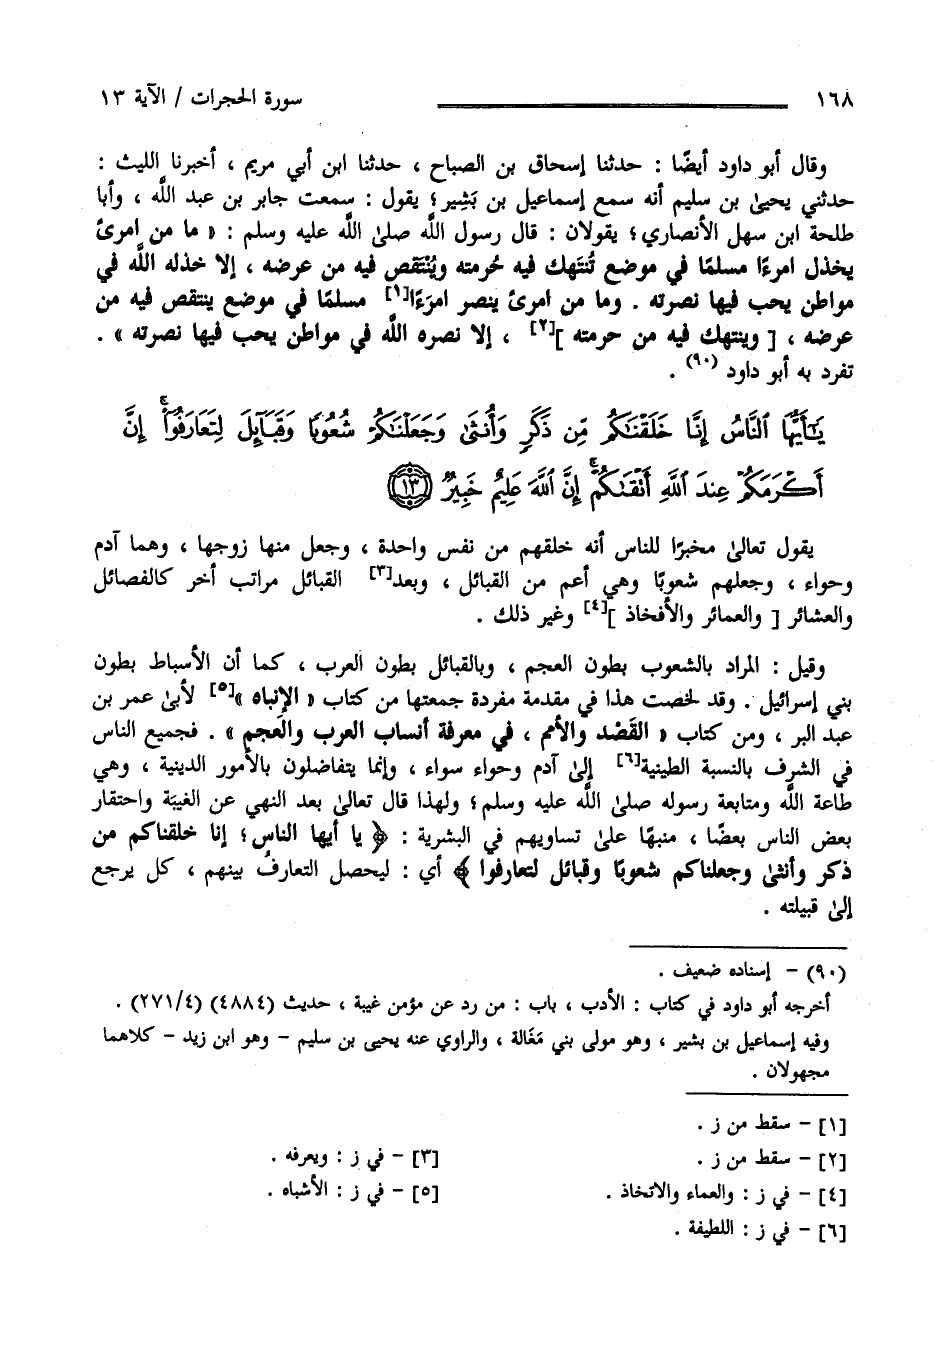 ١٦٨ سورة الحجرات / الآية ١٣
وقال أبو داود أيضًا : حدثنا إسحاق بن الصباح ، حدثنا ابن أبي مريم ، أخبرنا الليث :
حدثني يحيىٰ بن سليم أنه سمع إسماعيل بن بَشِير؛ يقول : سمعت جابر بن عبد اللَّه ، وأبا
طلحة ابن سهل الأنصاري؛ يقولان : قال رسول اللَّه صلىٰ اللَّه عليه وسلم : « ما من امرئ
يخذل امرءًا مسلمًا في موضع تُنتَهك فيه حُرمته ويُنْتَقص فيه من عرضه ، إلا خذله اللَّه في
مواطن يحب فيها نصرته . وما من امرئ ينصر امرَءًا[١] مسلمًا في موضع ينتقص فيه من
عرضه ، [ وينتهك فيه من حرمته ][٢] ، إلا نصره اللَّه في مواطن يحب فيها نصرته » .
تفرد به أبو داود (٩٠) .
يَٰٓأَيُّهَا ٱلنَّاسُ إِنَّا خَلَقْنَٰكُم مِّن ذَكَرٍ وَأُنثَىٰ وَجَعَلْنَٰكُمْ شُعُوبًا وَقَبَآئِلَ لِتَعَارَفُوٓا۟ ۚ إِنَّ
أَكْرَمَكُمْ عِندَ ٱللَّهِ أَتْقَىٰكُمْ ۚ إِنَّ ٱللَّهَ عَلِيمٌ خَبِيرٌ ١٣
يقول تعالىٰ مخبرًا للناس أنه خلقهم من نفس واحدة ، وجعل منها زوجها ، وهما آدم
وحواء ، وجعلهم شعوبًا وهي أعم من القبائل ، وبعد[٣] القبائل مراتب أخر كالفصائل
والعشائر [ والعمائر والأفخاذ ][٤] وغير ذلك .
وقيل : المراد بالشعوب بطون العجم ، وبالقبائل بطون العرب ، كما أن الأسباط بطون
بني إسرائيل . وقد لخصت هذا في مقدمة مفردة جمعتها من كتاب « الإنباه »[٥] لأبىٰ عمر بن
عبد البر ، ومن كتاب « القَصْد والأمم ، في معرفة أنساب العرب والعجم » . فجميع الناس
في الشرف بالنسبة الطينية[٦] إلىٰ آدم وحواء سواء ، وإنما يتفاضلون بالأمور الدينية ، وهي
طاعة اللَّه ومتابعة رسوله صلىٰ اللَّه عليه وسلم؛ ولهذا قال تعالىٰ بعد النهي عن الغيبَة واحتقار
بعض الناس بعضًا ، منبهًا علىٰ تساويهم في البشرية : ﴿ يا أيها الناس؛ إنا خلقناكم من
ذكر وأنثىٰ وجعلناكم شعوبًا وقبائل لتعارفوا ﴾ أي : ليحصل التعارفُ بينهم ، كل يرجع
إلىٰ قبيلته .
(٩٠) - إسناده ضعيف .
أخرجه أبو داود في كتاب : الأدب ، باب : من رد عن مؤمن غيبة ، حديث (٤٨٨٤) (٢٧١/٤) .
وفيه إسماعيل بن بشير ، وهو مولى بني مَغَالة ، والراوي عنه يحيى بن سليم - وهو ابن زيد - كلاهما
مجهولان .
[١] - سقط من ز .
[٢] - سقط من ز . [٣] - في ز : ويعرفه .
[٤] - في ز : والعماء والاتخاذ . [٥] - في ز : الأشباه .
[٦] - في ز : اللطيفة .